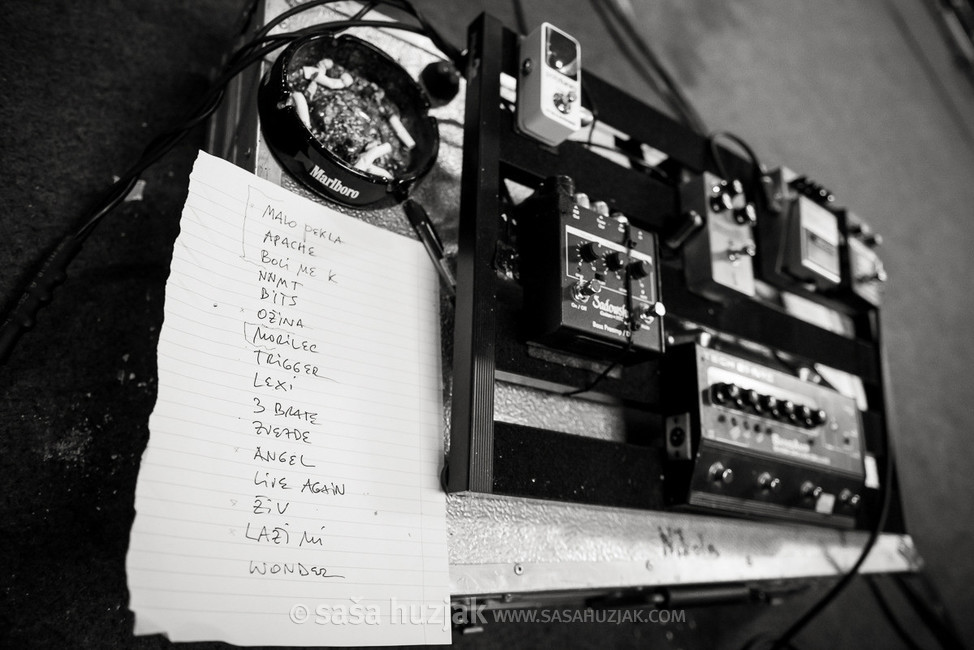 Marlboro
MALO PEKLA
APACHE
BOLI ME K
NNMT
BITS
OŽINA
MORILEC
TRIGGER
LEXI
3 BRATE
ZVEZDE
ANGEL
LIVE AGAIN
ŽIV
LAŽI MI
WONDER
Sadowsky
On / Off
Bass Preamp / DI
© saša huzjak WWW.SASAHUZJAK.COM